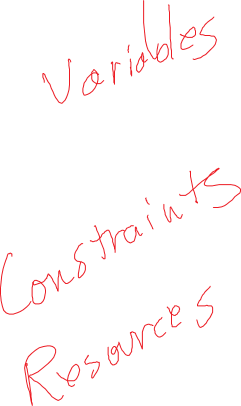 Variables
Constraints
Resources